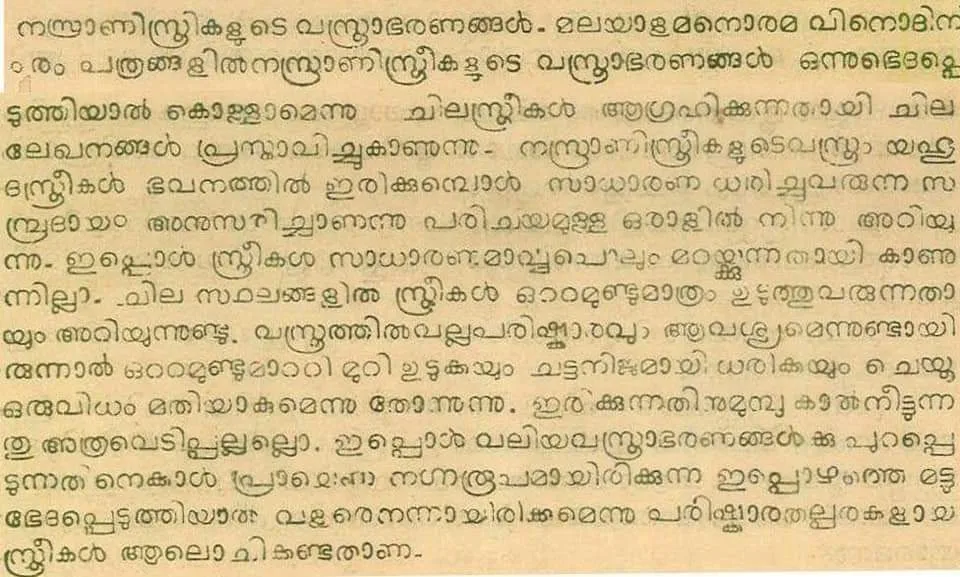 നസ്രാണിസ്ത്രികളുടെ വസ്ത്രാഭരണങ്ങൾ- മലയാളമനൊരമ വിനൊദിന
രം പത്രങ്ങളിൽനസ്രാണിസ്ത്രീകളുടെ വസ്ത്രാഭരണങ്ങൾ ഒന്നുഭെദപ്പെ
ടുത്തിയാൽ കൊള്ളാമെന്നു ചിലസ്ത്രീകൾ ആഗ്രഹിക്കുന്നതായി ചില
ലേഖനങ്ങൾ പ്രസ്താവിച്ചുകാണുന്നു- നസ്രാണിസ്ത്രീകളുടെവസ്ത്രം യഹൂ
ദസ്ത്രീകൾ ഭവനത്തിൽ ഇരിക്കുമ്പൊൾ സാധാരണ ധരിച്ചുവരുന്ന സ
മ്പ്രദായം അനുസരിച്ചാണന്നു പരിചയമുള്ള ഒരാളിൽ നിന്നു അറിയു
ന്നു- ഇപ്പൊൾ സ്ത്രീകൾ സാധാരണമാപ്പുപൊലും മറയ്ക്കുന്നതായി കാണു
ന്നില്ലാ- ചില സ്ഥലങ്ങളിൽ സ്ത്രീകൾ ഒററമുണ്ടുമാത്രം ഉടുത്തുവരുന്നതാ
യും അറിയുന്നുണ്ടു. വസ്ത്രത്തിൽവല്ലപരിഷ്കാരവും ആവശ്യമെന്നുണ്ടായി
രുന്നാൽ ഒററമുണ്ടുമാററി മുറി ഉടുക്കയും ചട്ടനിജമായി ധരിക്കയും ചെയ്തു
ഒരുവിധം മതിയാകുമെന്നു തോന്നുന്നു. ഇരിക്കുന്നതിനുമുമ്പു കാൽനീട്ടുന്ന
തു അത്രവെടിപ്പല്ലല്ലൊ. ഇപ്പൊൾ വലിയവസ്ത്രാഭരണങ്ങൾക്കു പുറപ്പെ
ടുന്നതിനെക്കാൾ പ്രായെണ നഗ്നരൂപമായിരിക്കുന്ന ഇപ്പൊഴത്തെ മട്ടു
ഭേദപ്പെടുത്തിയാൽ വളരെനന്നായിരിക്കുമെന്നു പരിഷ്കാരതല്പരകളായ
സ്ത്രീകൾ ആലൊചിക്കണ്ടതാണ-